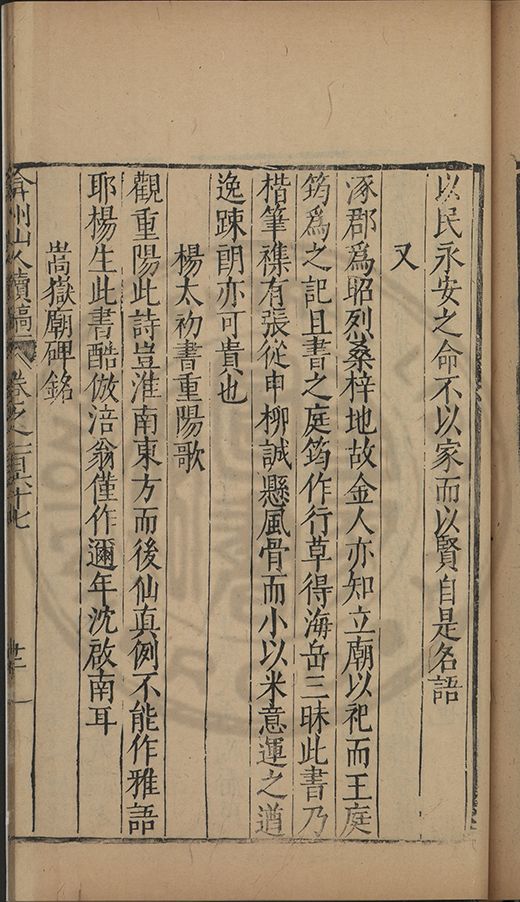 以民永安之命不以家而以賢自是名語
又
涿郡爲昭烈桑梓地故金人亦知立廟以祀而王庭
筠爲之記且書之庭筠作行草得海岳三昧此書乃
楷筆襍有張從申柳誠懸風骨而小以米意運之遒
逸踈朗亦可貴也
楊太初書重陽歌
觀重陽此詩豈淮南東方而後仙真例不能作雅語
耶楊生此書酷倣涪翁僅作邇年沈啟南耳
嵩嶽廟碑銘
弇州山人續稿 卷之一百六十七